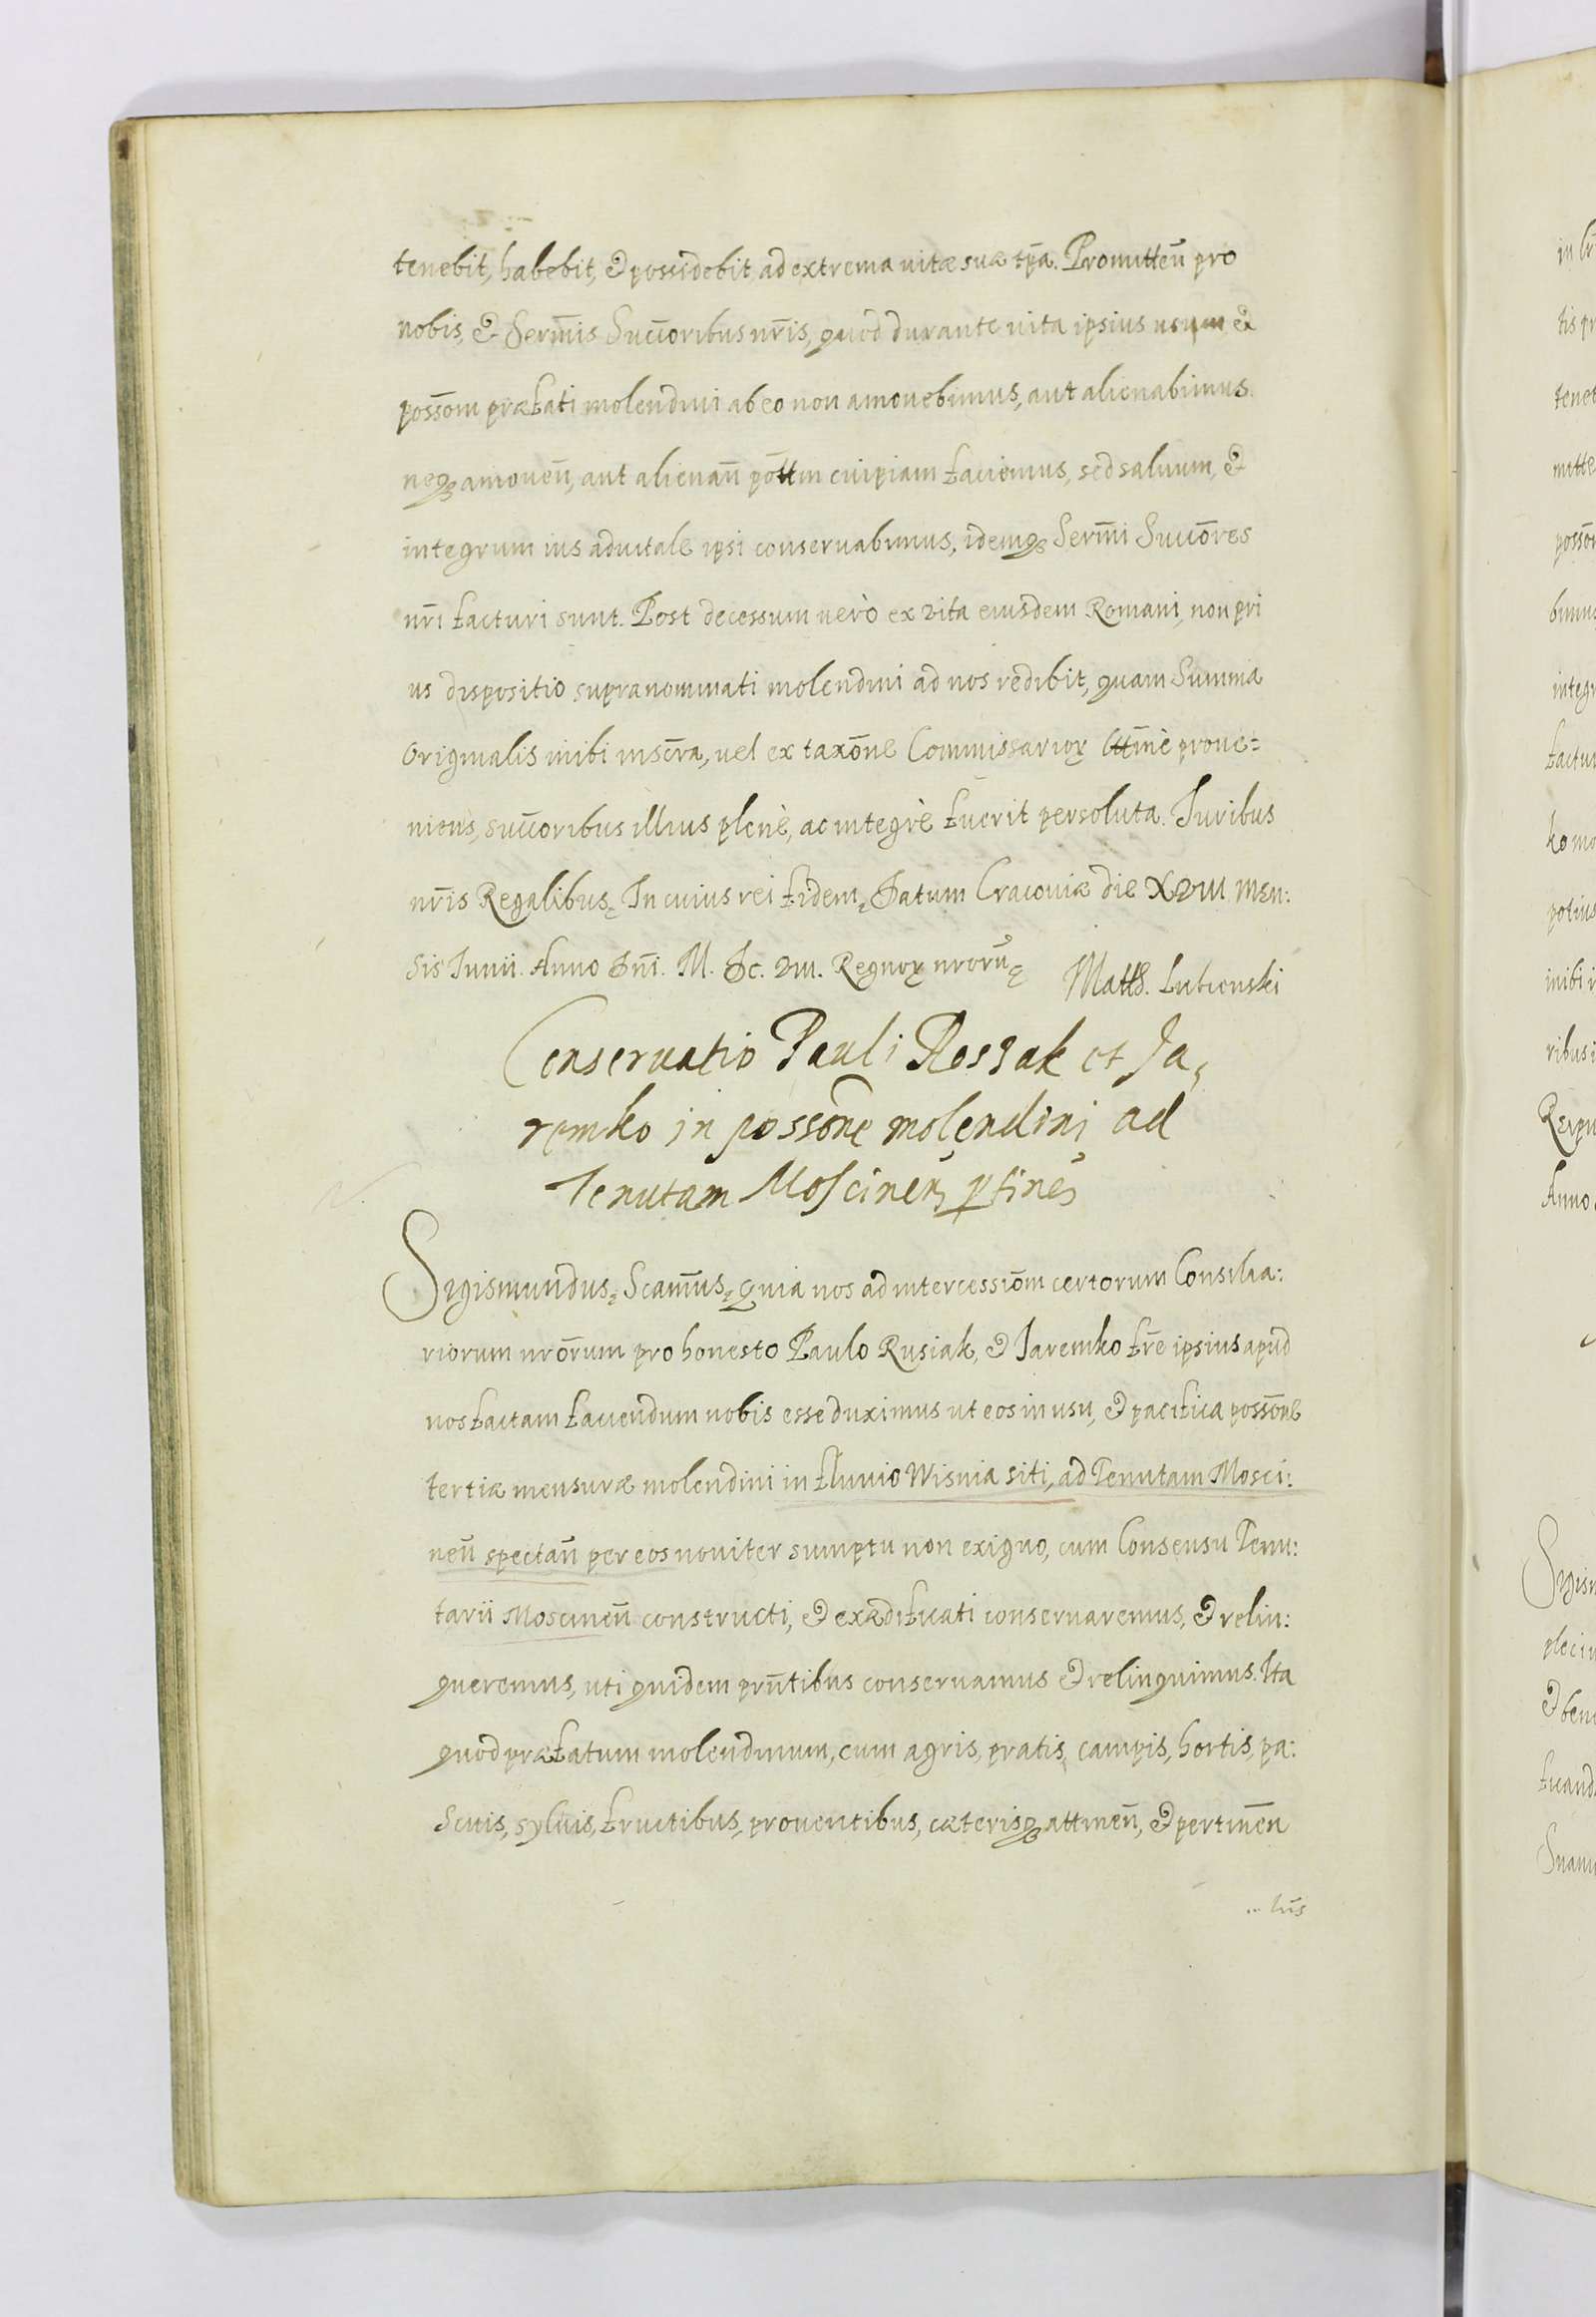 tenebit, habebit, & possidebit, ad extrema uitæ suæ tp̄a. Promitteñ pro
nobis, & Serm̄is Succ̄oribus nr̄is, quod durante uita ipsius usum &
possōm præfati molendini ab eo non amouebimus, aut alienabimus.
neqꝫ amoueñ, aut alienañ pōttm cuipiam faciemus, sed saluum, &
integrum ius aduitale ipsi conseruabimus, idemqꝫ Serm̄i Succōres
nr̄i facturi sunt. Post decessum uerò ex vita eiusdem Romani, non pri
us dispositio supranominati molendini ad nos redibit, quam Summa
Originalis inibi inscr̄a, uel ex taxōne Commissarioꝝ lttīmè proue=
niens, succ̄oribus illius plenè, ac integrè fuerit persoluta. Iuribus
nr̄is Regalibus, In cuius rei fidem, Datum Cracouiæ die XVIII men:
sis Iunii. Anno Dn̄i. M. Dc. VIII. Regnoꝝ nrorū,
Matth. Lubienski
Conseruatio Pauli Rossak et Ja,
remko in possōne molendini ad
Tenutam Moscinens ꝑtines
Sigismundus, Scām̄us, quia nos ad intercessiōm certorum Consilia:
riorum nrōrum pro honesto Paulo Rusiak, & Jaremko fr̄e ipsius apud
nos factam faciendum nobis esse duximus ut eos in usu, & pacifica possōne
tertiæ mensuræ molendini in fluuio Wisnia siti, ad Tenutam Mosci:
neñ spectañ per eos nouiter sumptu non exiguo, cum Consensu Tenu:
tarii Moscineñ constructi, & exædificati conseruaremus, & relin:
queremus, uti quidem prn̄tibus conseruamus & relinquimus. Ita
quod præfatum molendinum, cum agris, pratis, campis, hortis, pa:
scuis, syluis, fructibus, prouentibus, cæterisqꝫ attineñ, & pertineñ